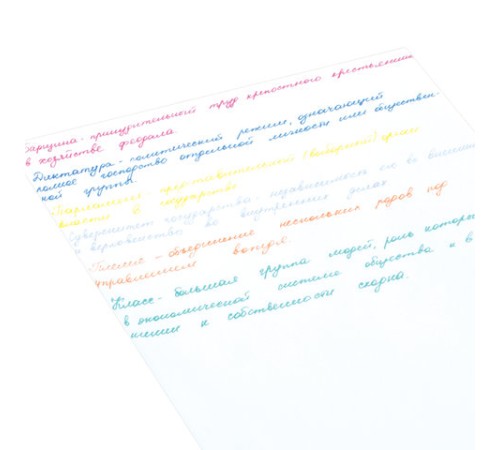 Барщина - принудительный труд крепостного крестьянина
в хозяйстве феодала.
Диктатура - политический режим, означающий
полное господство отдельной личности или обществен-
ной группы.
Парламент представительский (выборный) орган
власти в государстве
Суверенитет государства - независимость его во внешних
и верховенство во внутренних делах
Племя - объединение нескольких родов под
управлением вождя.
Класс - большая группа людей, роль которых
в экономической системе общества и в
шении к собственности сходна.